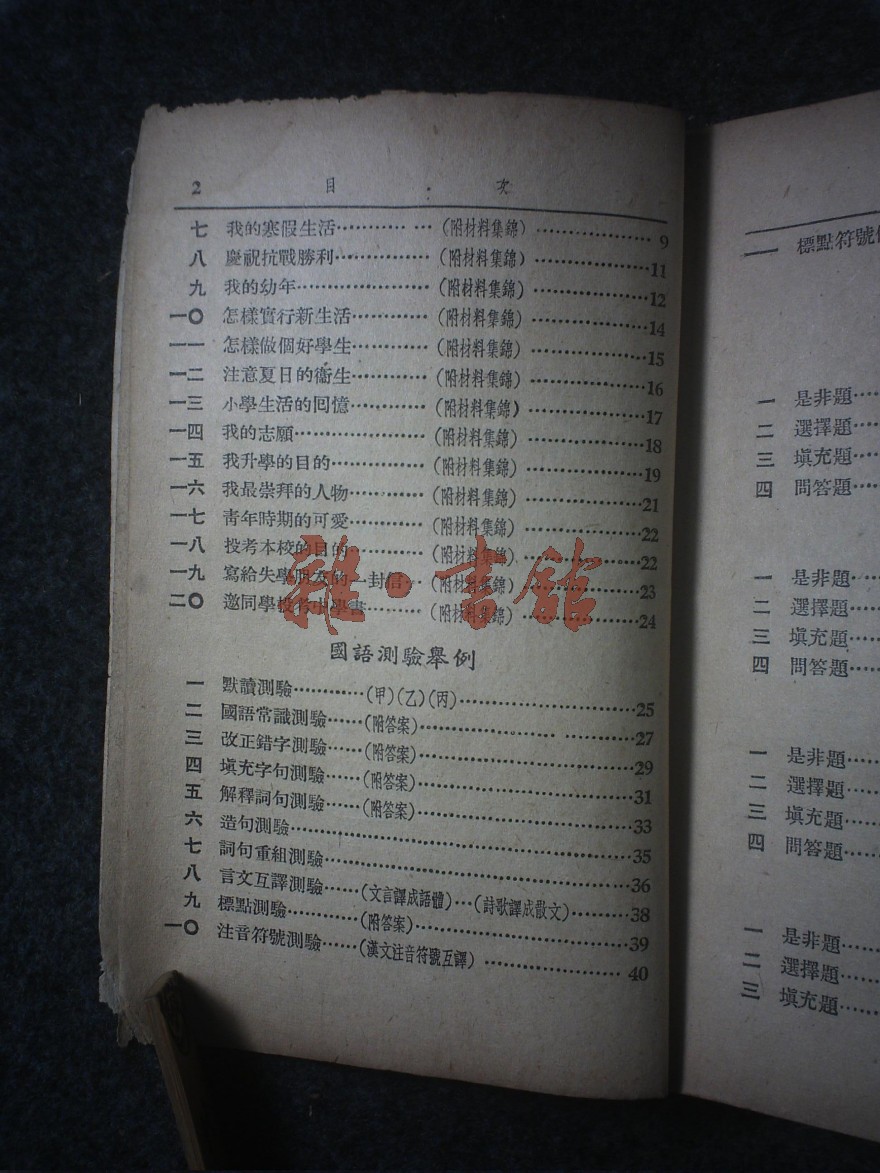 2 目・次
七 我的寒假生活………… …(附材料集錦)…………9
八 慶祝抗戰勝利……………(附材料集錦)…………11
九 我的幼年…………………(附材料集錦)…………12
一〇 怎樣實行新生活…………(附材料集錦)…………14
一一 怎樣做個好學生…………(附材料集錦)…………15
一二 注意夏日的衞生…………(附材料集錦)…………16
一三 小學生活的回憶…………(附材料集錦)…………17
一四 我的志願…………………(附材料集錦)…………18
一五 我升學的目的……………(附材料集錦)…………19
一六 我最崇拜的人物…………(附材料集錦)…………21
一七 靑年時期的可愛…………(附材料集錦)…………22
一八 投考本校的目的…………(附材料集錦)…………22
一九 寫給失學朋友的一封信…(附材料集錦)…………23
二〇 邀同學投考中學書………(附材料集錦)…………24
國語測驗舉例
一 默讀測驗…………(甲)(乙)(丙)…………………25
二 國語常識測驗……(附答案)…………………… ………27
三 改正錯字測驗……(附答案)…………………………29
四 填充字句測驗……(附答案)…………………………31
五 解釋詞句測驗……(附答案)…………………………33
六 造句測驗………………………………………………35
七 詞句重組測驗…………………………………………36
八 言文互譯測驗……(文言譯成語體)…(詩歌譯成散文)………38
九 標點測驗…………(附答案)…………………………39
一〇 注音符號測驗……(漢文注音符號互譯)………………40
雜・書館
二 標點符號
一 是非題…
二 選擇題…
三 填充題…
四 問答題…
一 是非題…
二 選擇題…
三 填充題…
四 問答題…
一 是非題…
二 選擇題…
三 填充題…
四 問答題…
一 是非題…
二 選擇題…
三 填充題…